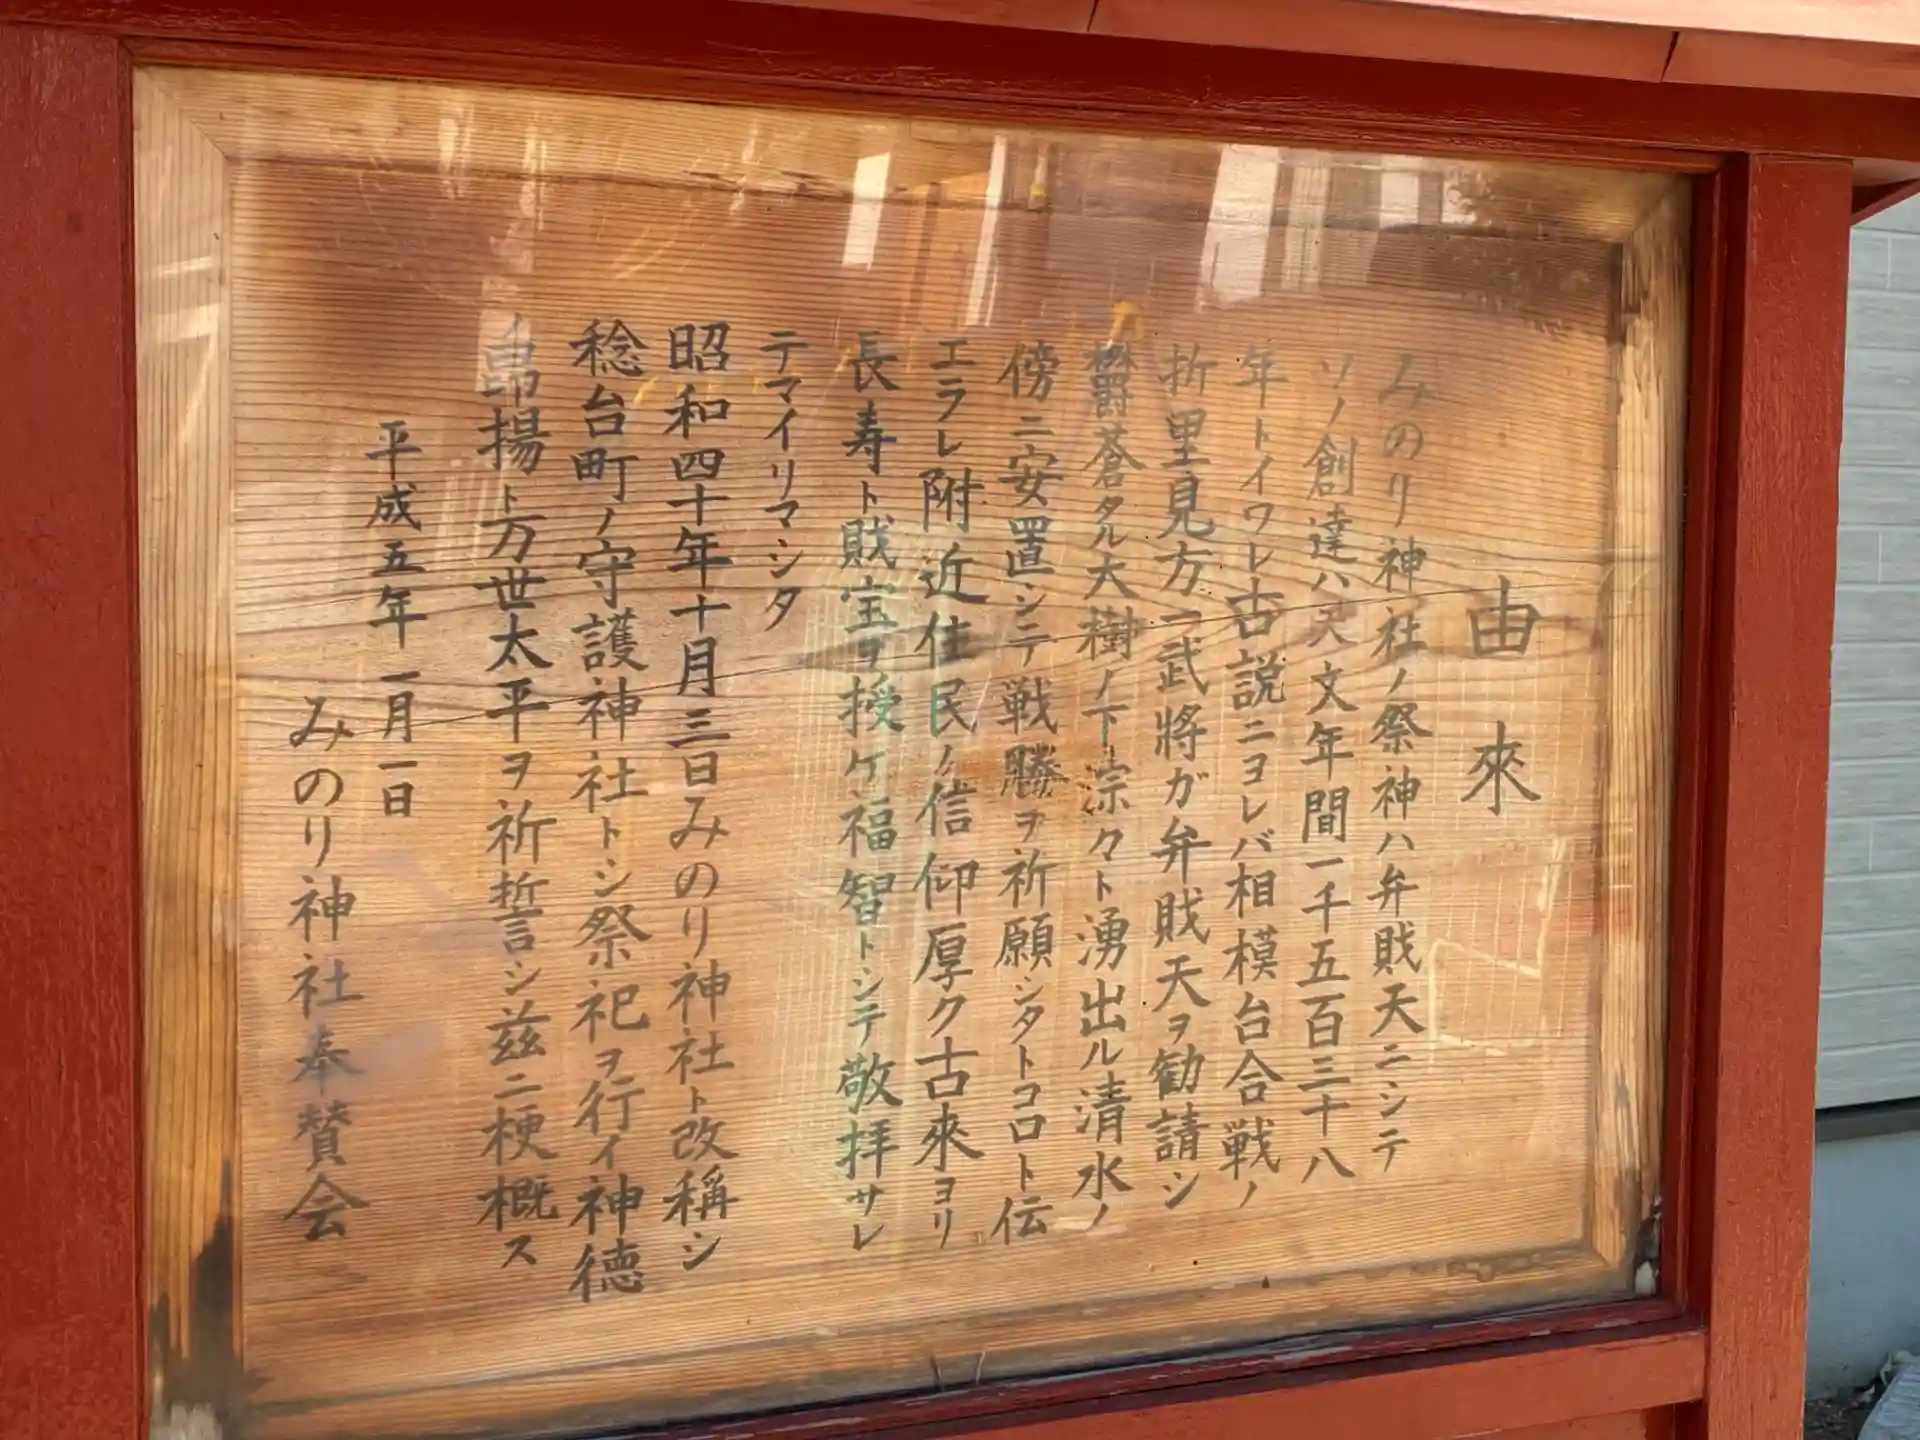 由來
みのり神社ノ祭神ハ弁賎天ニシテ
ソノ創達ハ天文年間一千五百三十八
年トイワレ古説ニヨレバ相模台合戦ノ
折里見方一武将ガ弁賎天ヲ勧請シ
欝蒼タル大樹ノ下淙々ト湧出ル清水ノ
傍ニ安置シテ戦勝ヲ祈願シタトコロト伝
エラレ附近住民ノ信仰厚ク古來ヨリ
長寿ト賎宝ヲ授ケ福智トシテ敬拝サレ
テマイリマシタ
昭和四十年十月三日みのり神社ト改稱シ
稔台町ノ守護神社トシ祭祀ヲ行イ神徳
昂揚ト万世太平ヲ祈誓シ茲ニ梗概ス
平成五年一月一日
みのり神社奉賛会